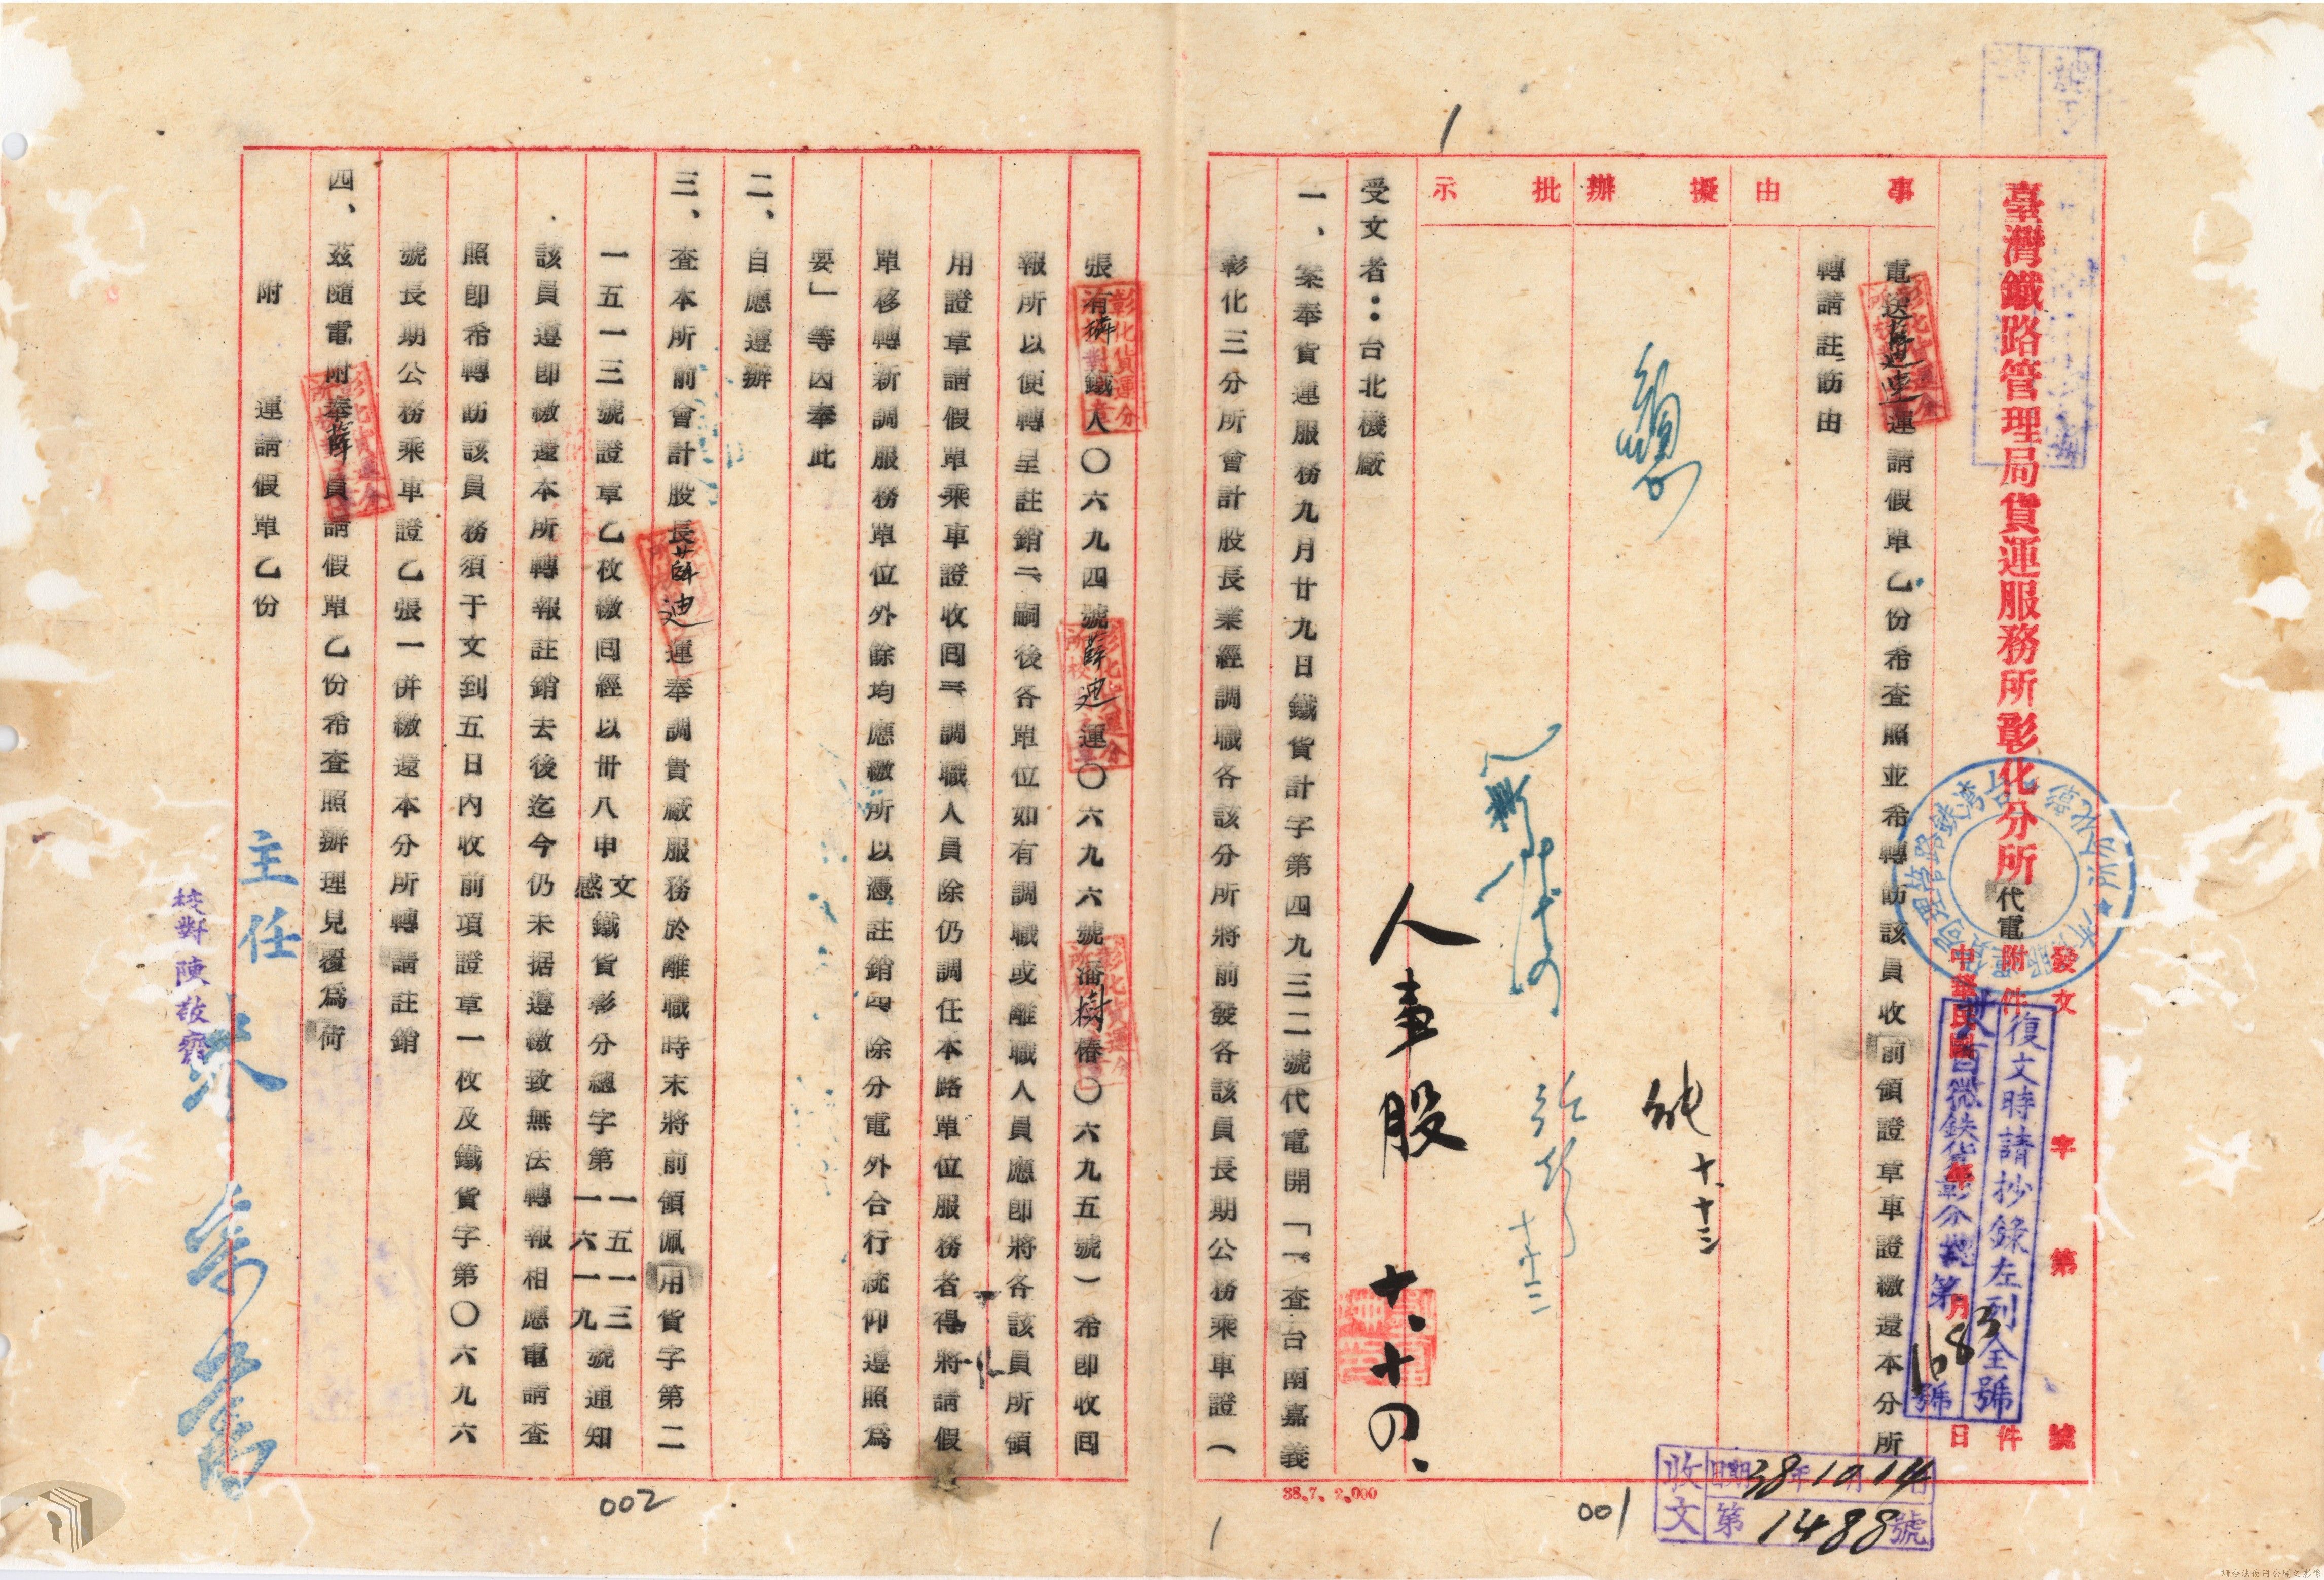 臺灣鐵路管理局貨運服務所彰化分所代電
發文 字第 號
附件 件
中華民國 年 月 日
復文時請抄錄左列全號
酉微鉄貨彰分總第1683號
事由
電送薛迪運請假單乙份希查照並希轉飭該員收前領證章車證繳還本分所
轉請註飭由
擬辦
純 十、十三
批示
人事股 十、十四、
受文者：台北機廠
一、案奉貨運服務九月廿九日鐵貨計字第四九三二號代電開「一、查台南嘉義
彰化三分所會計股長業經調職各該分所將前發各該員長期公務乘車證（
張洧㙫鐵人〇六九四號薛迪運〇六九六號潘樹椿〇六九五號）希即收回
報所以便轉呈註銷二、嗣後各單位如有調職或離職人員應即將各該員所領
用證章請假單乘車證收回三、調職人員除仍調任本路單位服務者得將請假
單移轉新調服務單位外餘均應繳所以憑註銷四、除分電外合行統仰遵照爲
要」等因奉此
二、自應遵辦
三、查本所前會計股長薛迪運奉調貴廠服務於離職時末將前領佩用貨字第二
一五一三號證章乙枚繳回經以卅八申文感鐵貨彰分總字第一五一三一六一九號通知
該員遵即繳還本所轉報註銷去後迄今仍未据遵繳致無法轉報相應電請查
照卽希轉飭該員務須于文到五日內收前項證章一枚及鐵貨字第〇六九六
號長期公務乘車證乙張一併繳還本分所轉請註銷
四、茲隨電附奉薛員請假單乙份希查照辦理見覆爲荷
附 運請假單乙份
主任
校對 陳啟齊
收文 日期38年10月14日
第1488號
38.7. 2,000
001
002